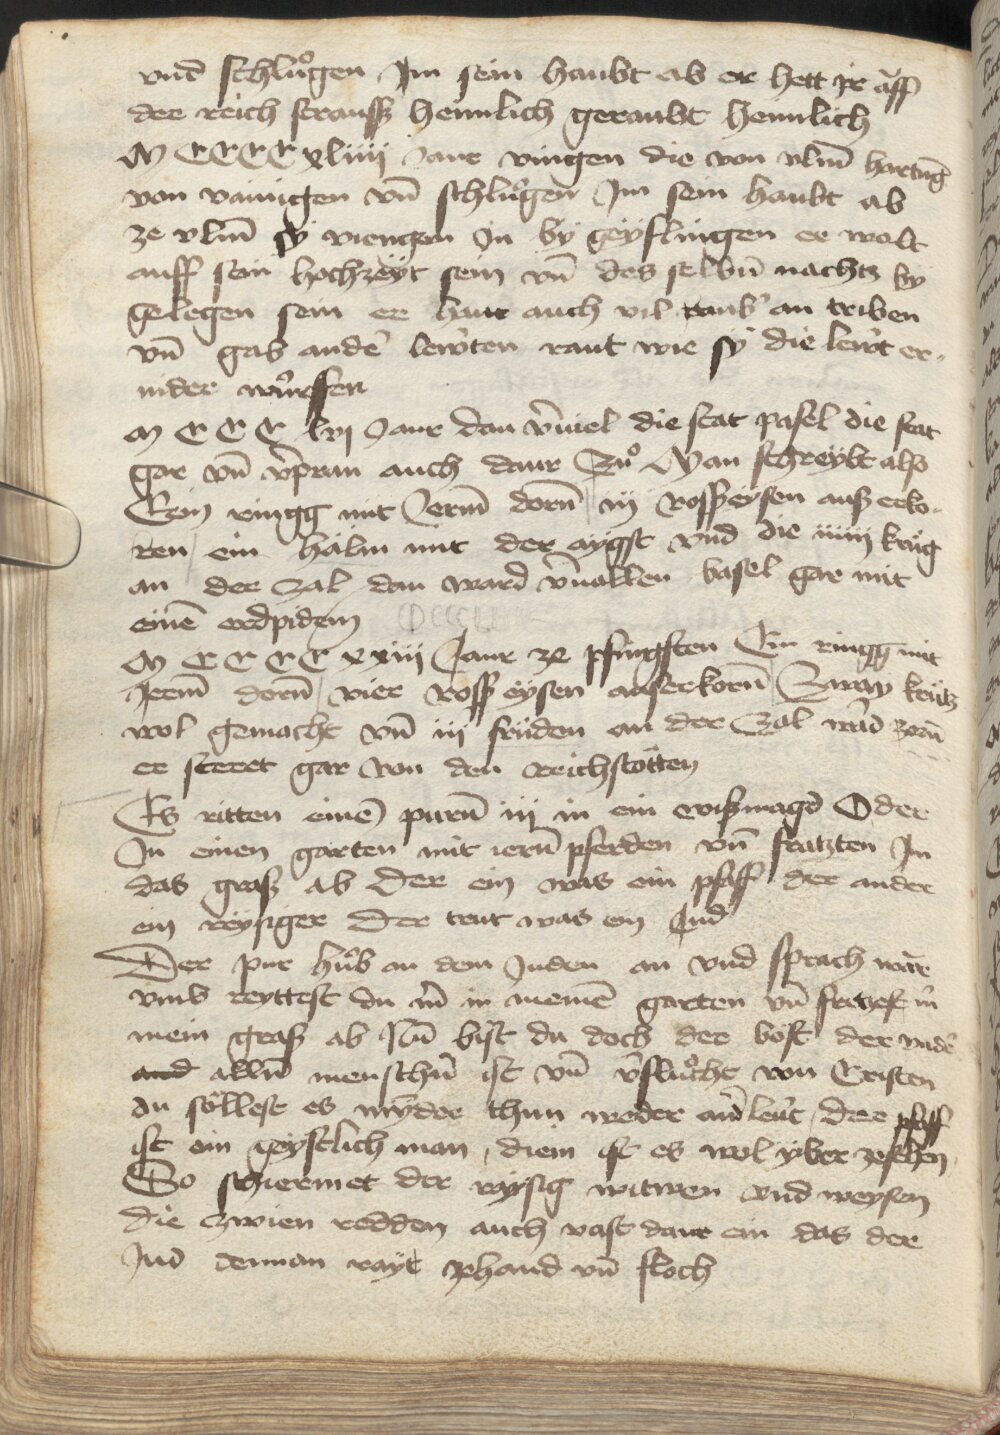 vnd schlůgen Jm sein haubt ab er hett jr aff
der reich strauss heimlich geraubt heimlich
M CCCC xliiij Jaur viengen die von vlm̄ hartūg
von vainigen vn̄ schlůgen Jm sein haubt ab
ze vlm̄ sy viengen jn by geyslingen er wolt
auff sein hochzeyt sein vn̄ des selbn̄ nachtz by
gelegen sein er hatt auch vil raub an triben
vn̄ gab andr̄ lewten raut wie sy die lewt er-
nider wurffen
M CCC lvj Jaur dau v̄viel die stat pasel die stat
gar vn̄ v̄pran auch daur Zů Man schreybt also
Ein ringg mit Jerm̄ dorn̄ iij Rosseysen ausserko-
ren ein hälm mit der aygst vnd die iiiiij krüg
an der zal dau ward v̄uallen basel gar mit
einē erdpidem
M CCCC xxiii Jaur ze pfingsten Ein ringg mit
Jrem̄ dorn̄ vier Rosseysen ausserkorn̄ Zway krütz
wol gemacht vn̄ iij früden an der Zal
er street gar von den reichstötten
Es ritten einē purn̄ iij in ein wissmagd Oder
Jn einen garten mit iern̄ pferden vn̄ fratzten Jm
das grass ab Der ein was ein pfaff der ander
ein reysiger Der trit was ein Jud
Der pur hůb an dem Juden an vnd sprach war
vmb reyttest du mir in meinē garten vn̄ fretzest mir
mein grass ab Nū bist du doch der böst der vndr̄
allen menschn̄ ist vn̄ v̄flůcht von Cristen
du söllest es mynder thun weder and̄ leut, der pfaff
ist ein geystlich man, diem ist es wol yber zesehen
So schiermet der reysig witwen vnd weysen
die zwien redden auch vast daur ein das der
Jud dennan rayt zehand vn̄ floch